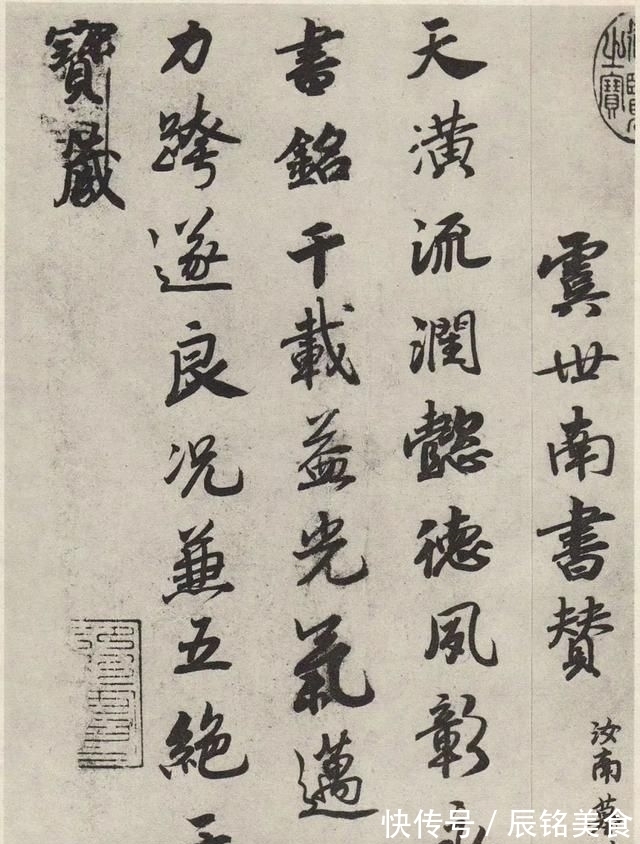 虞世南書贊
汝南
天潢流潤懿德夙彰
書銘千載益光氣邁
力跨遂良況兼五絕
寶藏
快传号/辰铭美食